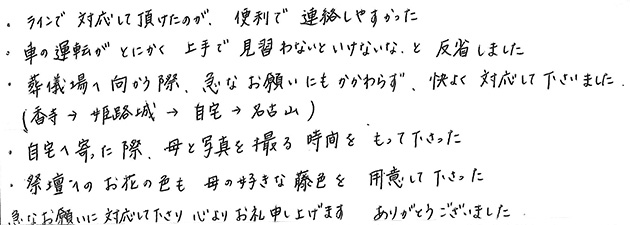 ・ラインで 対応して頂けたのが、便利で 連絡しやすかった
・車の運転が とにかく 上手で 見習わないといけないな、と 反省しました
・葬儀場へ向かう際、急なお願いにもかかわらず、快よく 対応して下さいました。
(香寺→姫路城→自宅→名古山)
・自宅へ寄った際、母と写真を撮る 時間を もって下さった
・祭壇へのお花の色も 母の好きな藤色を 用意して下さった
急なお願いに対応して下さり 心よりお礼申し上げます ありがとうございました。